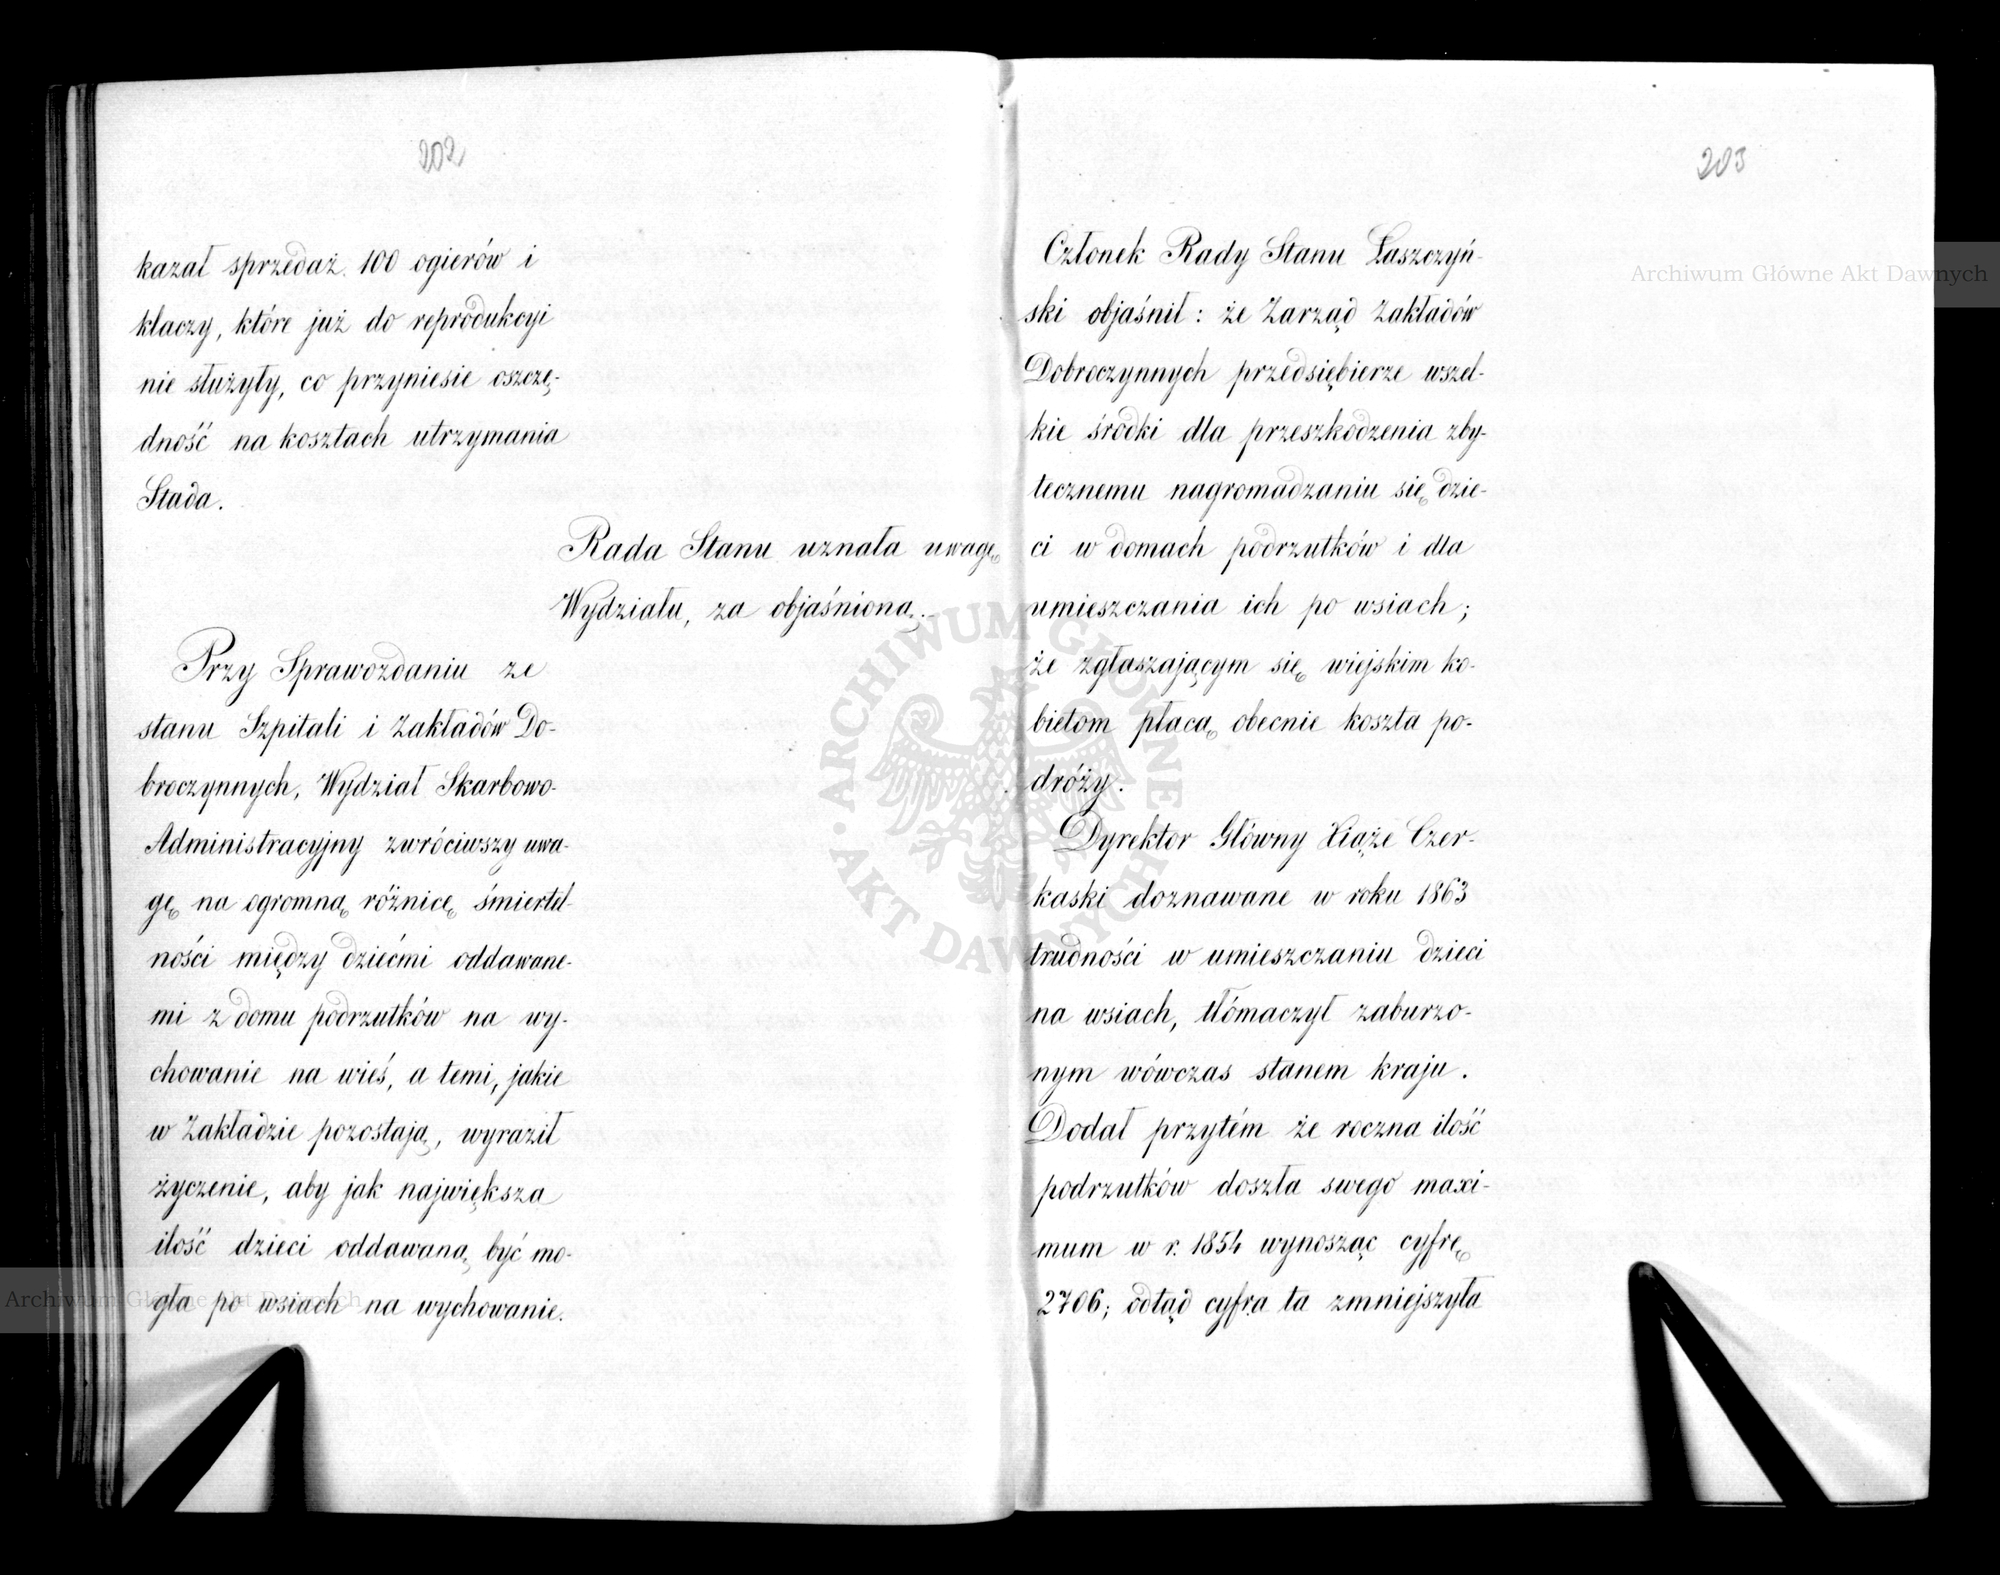 202
kazał sprzedaż 100 ogierów i
klaczy, które już do reprodukcyi
nie służyły, co przyniesie oszczę-
dność na kosztach utrzymania
Stada.
Rada Stanu uznała uwagę
Wydziału, za objaśnioną.
Przy Sprawozdaniu ze
stanu Szpitali i Zakładów Do-
broczynnych, Wydział Skarbowo-
Administracyjny zwróciwszy uwa-
gę na ogromną różnicę śmiertel-
ności między dziećmi oddawane-
mi z domu podrzutków na wy-
chowanie na wieś, a temi, jakie
w Zakładzie pozostają, wyraził
życzenie, aby jak największa
ilość dzieci oddawaną być mo-
gła po wsiach na wychowanie.
203
Członek Rady Stanu Łaszczyń-
ski objaśnił: że Zarząd Zakładów
Dobroczynnych przedsiębierze wszel-
kie środki dla przeszkodzenia zby-
tecznemu nagromadzaniu się dzie-
ci w domach podrzutków i dla
umieszczania ich po wsiach;
że zgłaszającym się wiejskim ko-
bietom płacą obecnie koszta po-
dróży.
Dyrektor Główny Xiąże Czer-
kaski doznawane w roku 1863
trudności w umieszczaniu dzieci
na wsiach, tłómaczył zaburzo-
nym wówczas stanem kraju.
Dodał przytém że roczna ilość
podrzutków doszła swego maxi-
mum w r. 1854 wynosząc cyfrę
2706; odtąd cyfra ta zmniejszyła
Archiwum Główne Akt Dawnych
Archiwum Główne Akt Dawnych
ARCHIWUM GŁÓWNE AKT DAWNYCH